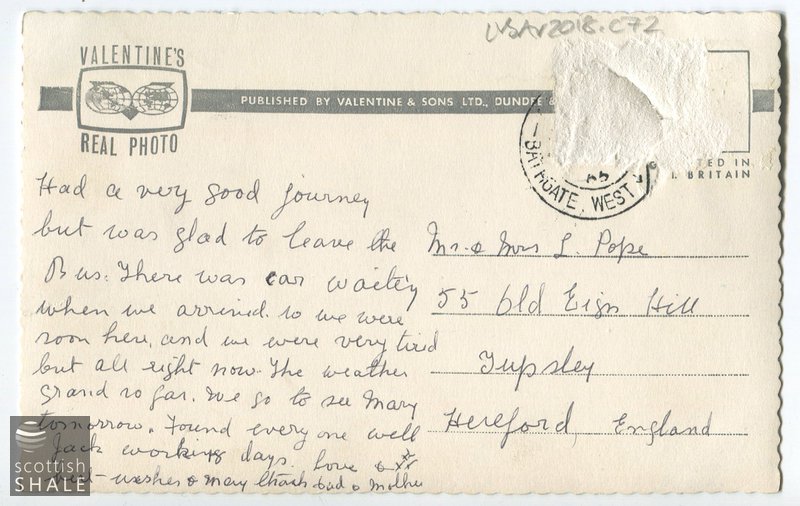 LVSAV2018.C72
VALENTINE'S
REAL PHOTO
PUBLISHED BY VALENTINE & SONS LTD., DUNDEE &
TED IN
BRITAIN
BATHGATE. WEST
65
Had a very good journey
but was glad to leave the
Bus. There was car waiting
when we arrived. so we were
soon here, and we were very tired
but all right now. The weather
grand so far. We go to see Mary
tomorrow. Found every one well
Jack working days. Love &
best-wishes & many thanks Dad & Mother
Mr. & Mrs L. Pope
55 Old Eign Hill
Tupsley
Hereford, England
scottish
SHALE